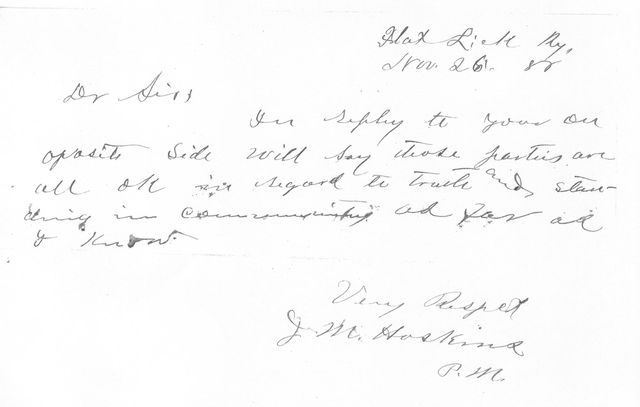 Flat Lick Ky,
Nov. 26. 88
Dr Sirs
In reply to your on
oposite side will say those parties are
all OK in regard to truth and stan-
ding in community as far as
I know.
Very Respct
J. M. Hoskins
P. M.